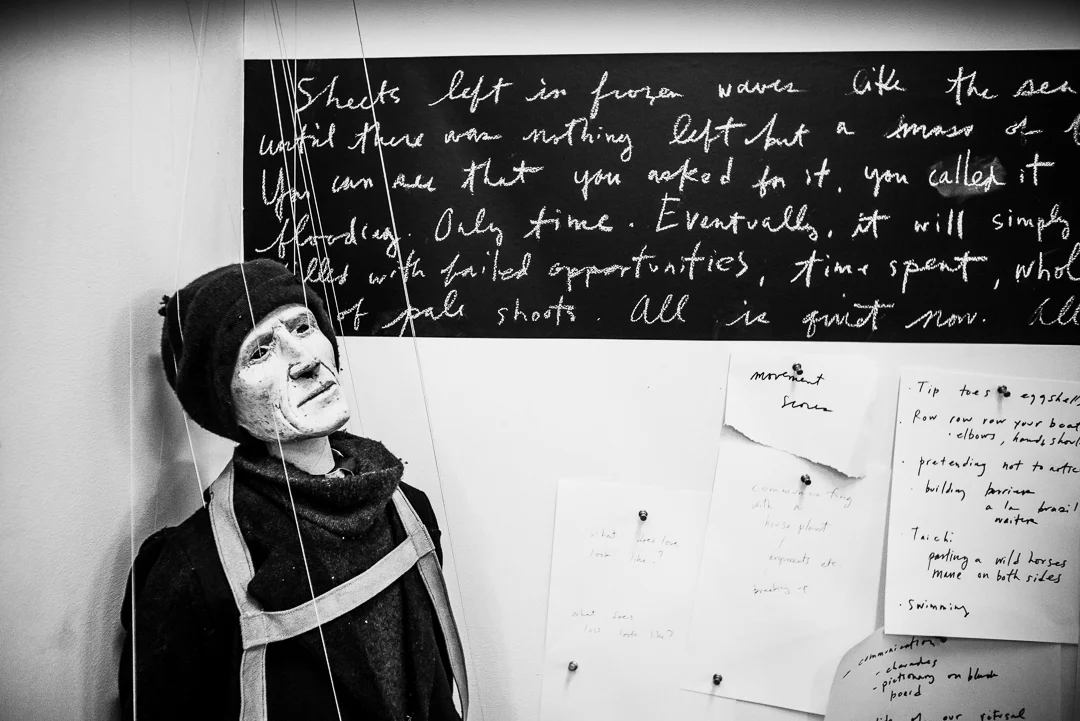 Sheets left in frozen waves like the sea
until there was nothing left but a mass of
You can see that you asked for it, you called it
flooding. Only time. Eventually, it will simply
with failed opportunities, time spent, whol
of pale shoots. All is quiet now. All
movement
scores
communicating
with a
house plant
/
arguments etc.
breaking up
what does love
look like?
what does
loss look like?
· Tip toes eggshells
· Row row row your boat
· elbows, hands, shoul
· pretending not to notice
· building barriers
a la brazil
waiters
· Tai chi
parting a wild horses
mane on both sides
· Swimming
/ communication
- charades
- pictionary on black
board
of our refusal